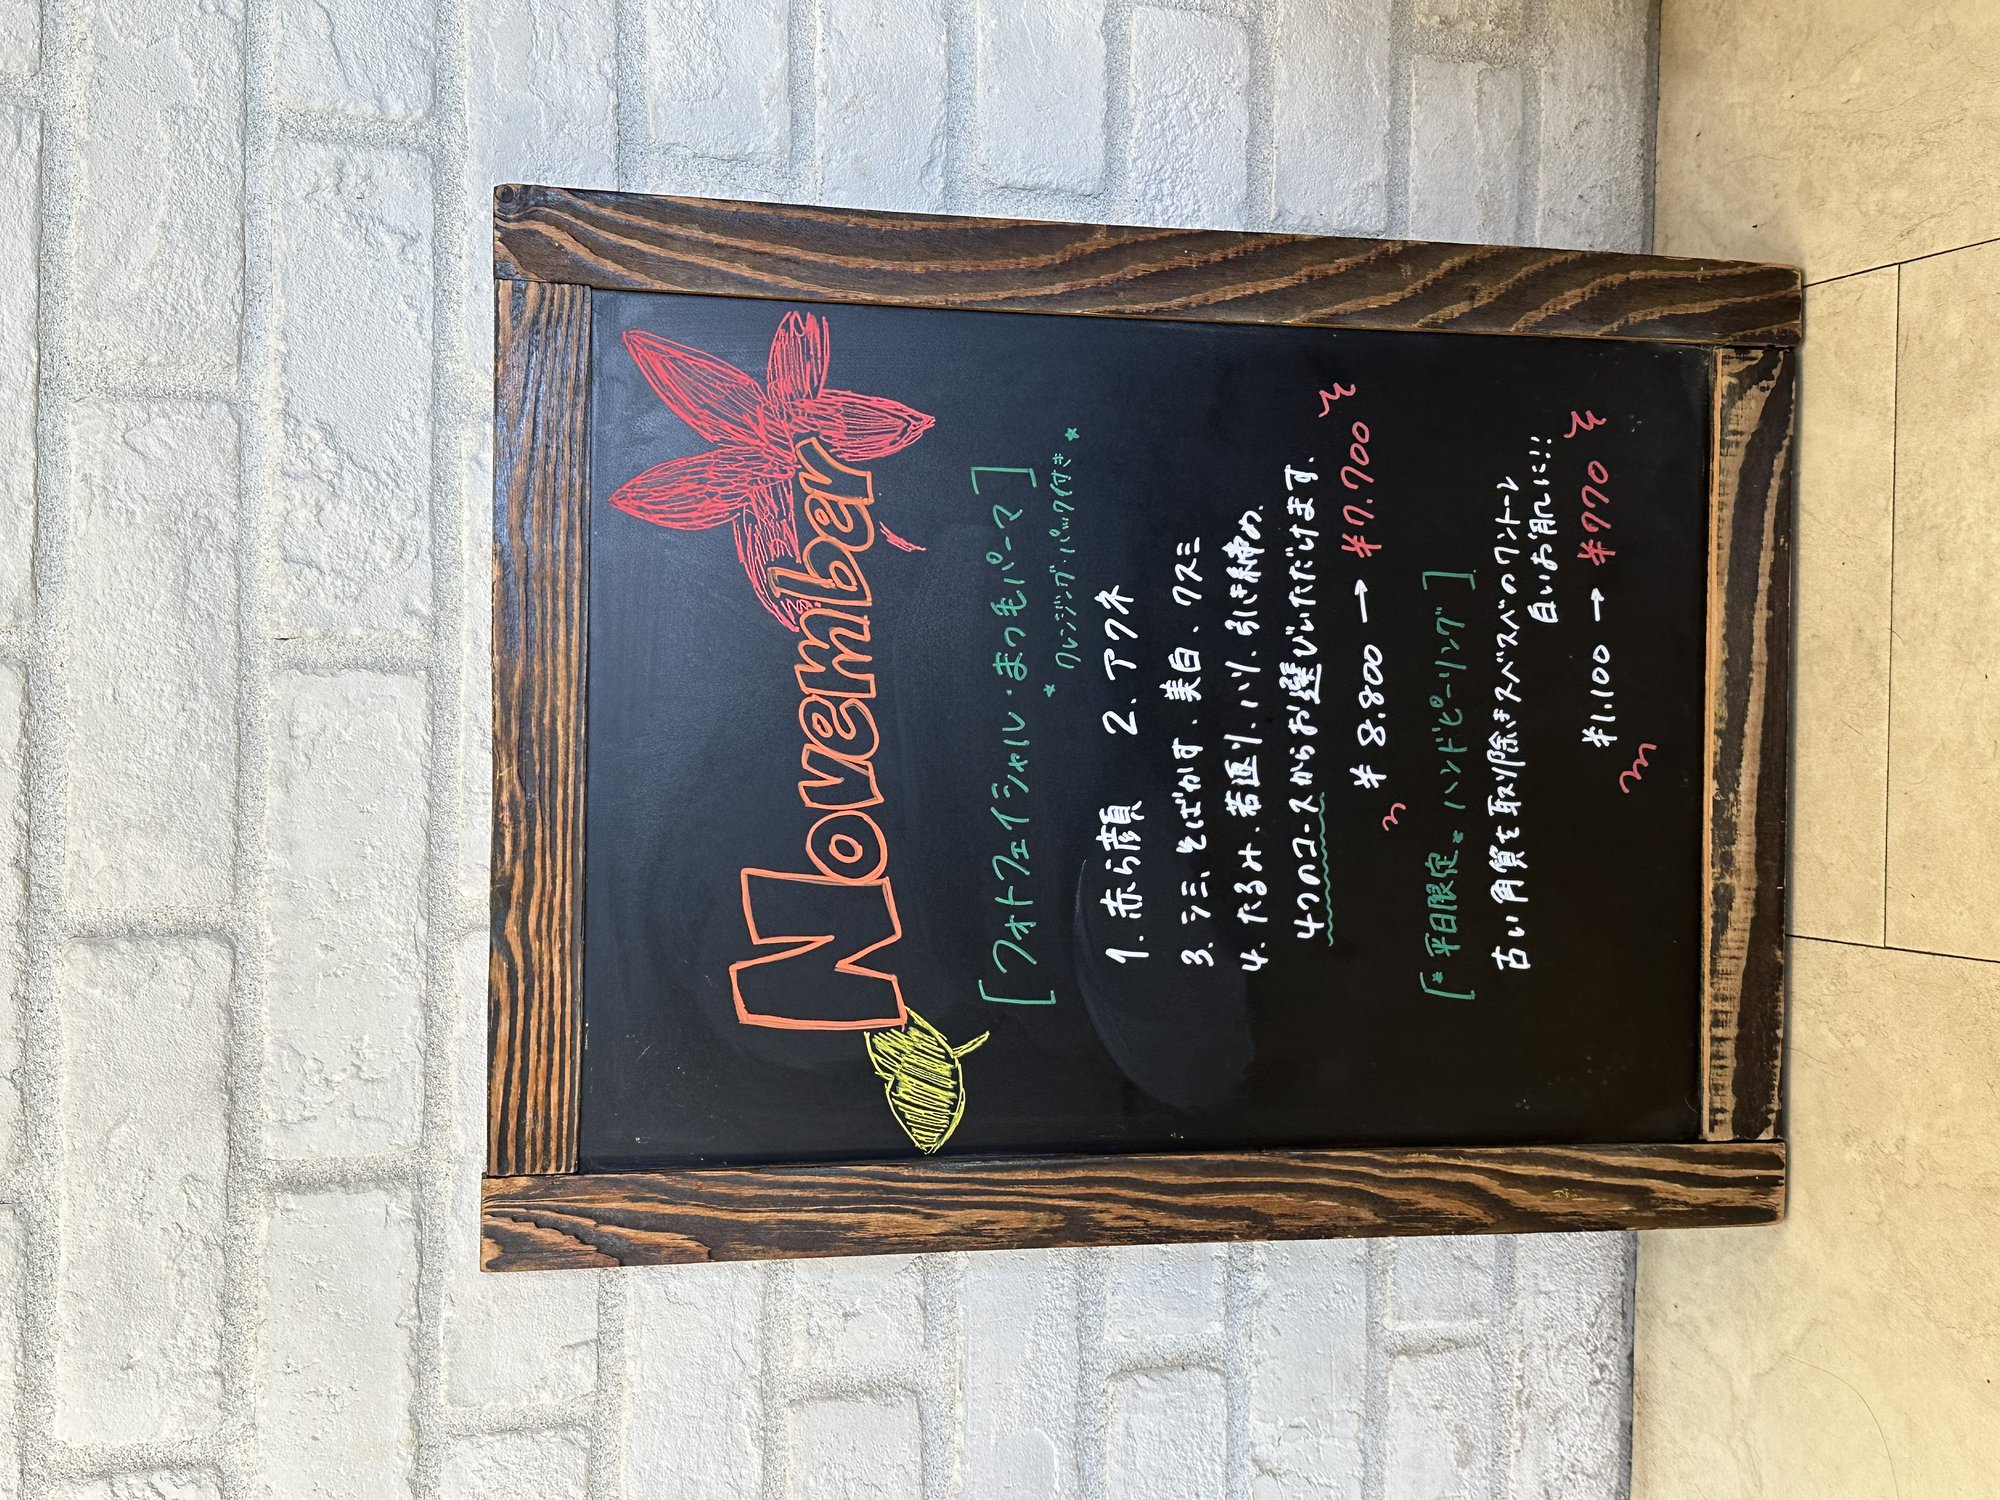 November
[フォトフェイシャル・まつ毛パーマ]
*クレンジング・パック付き*
1. 赤ら顔 2. アクネ
3. シミ、そばかす、美白、クスミ
4. たるみ、若返り、ハリ、引き締め、
4つのコースからお選びいただけます.
¥8.800 → ¥7.700
[*平日限定* ハンドピーリング]
古い角質を取り除きスベスベのワントーン
白いお肌に!!
¥1.100 → ¥770